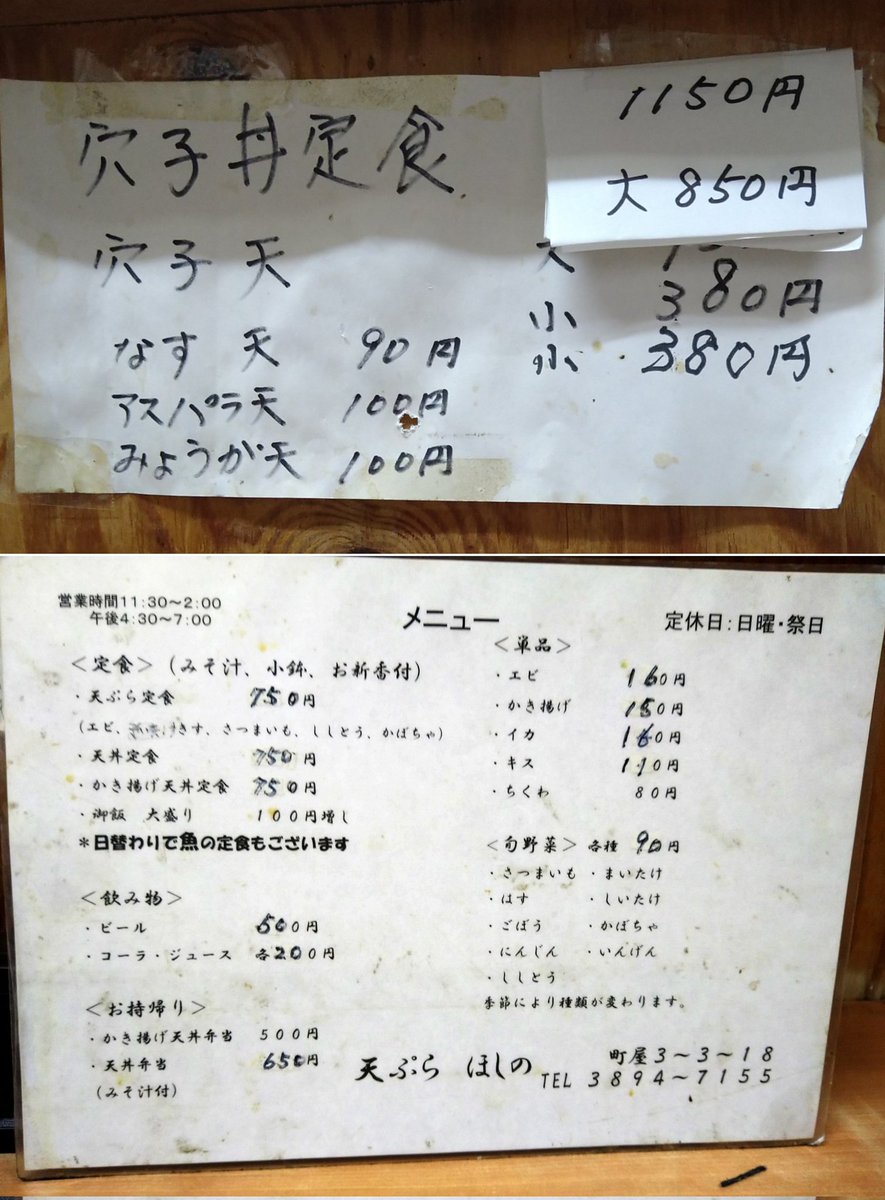 穴子丼定食 1150円
穴子天 大 850円
小 380円
小 380円
なす天 90円
アスパラ天 100円
みょうが天 100円
営業時間11:30～2:00
午後4:30～7:00
メニュー
定休日:日曜・祭日
＜定食＞(みそ汁、小鉢、お新香付)
・天ぷら定食 750円
(エビ、きす、さつまいも、ししとう、かぼちゃ)
・天丼定食 750円
・かき揚げ天丼定食 750円
・御飯 大盛り 100円増し
＊日替わりで魚の定食もございます
＜飲み物＞
・ビール 500円
・コーラ・ジュース 各200円
＜お持帰り＞
・かき揚げ天丼弁当 500円
・天丼弁当 650円
(みそ汁付)
＜単品＞
・エビ 160円
・かき揚げ 150円
・イカ 160円
・キス 110円
・ちくわ 80円
＜旬野菜＞ 各種 90円
・さつまいも ・まいたけ
・はす ・しいたけ
・ごぼう ・かぼちゃ
・にんじん ・いんげん
・ししとう
季節により種類が変わります。
天ぷら ほしの
町屋3～3～18
TEL 3894～7155